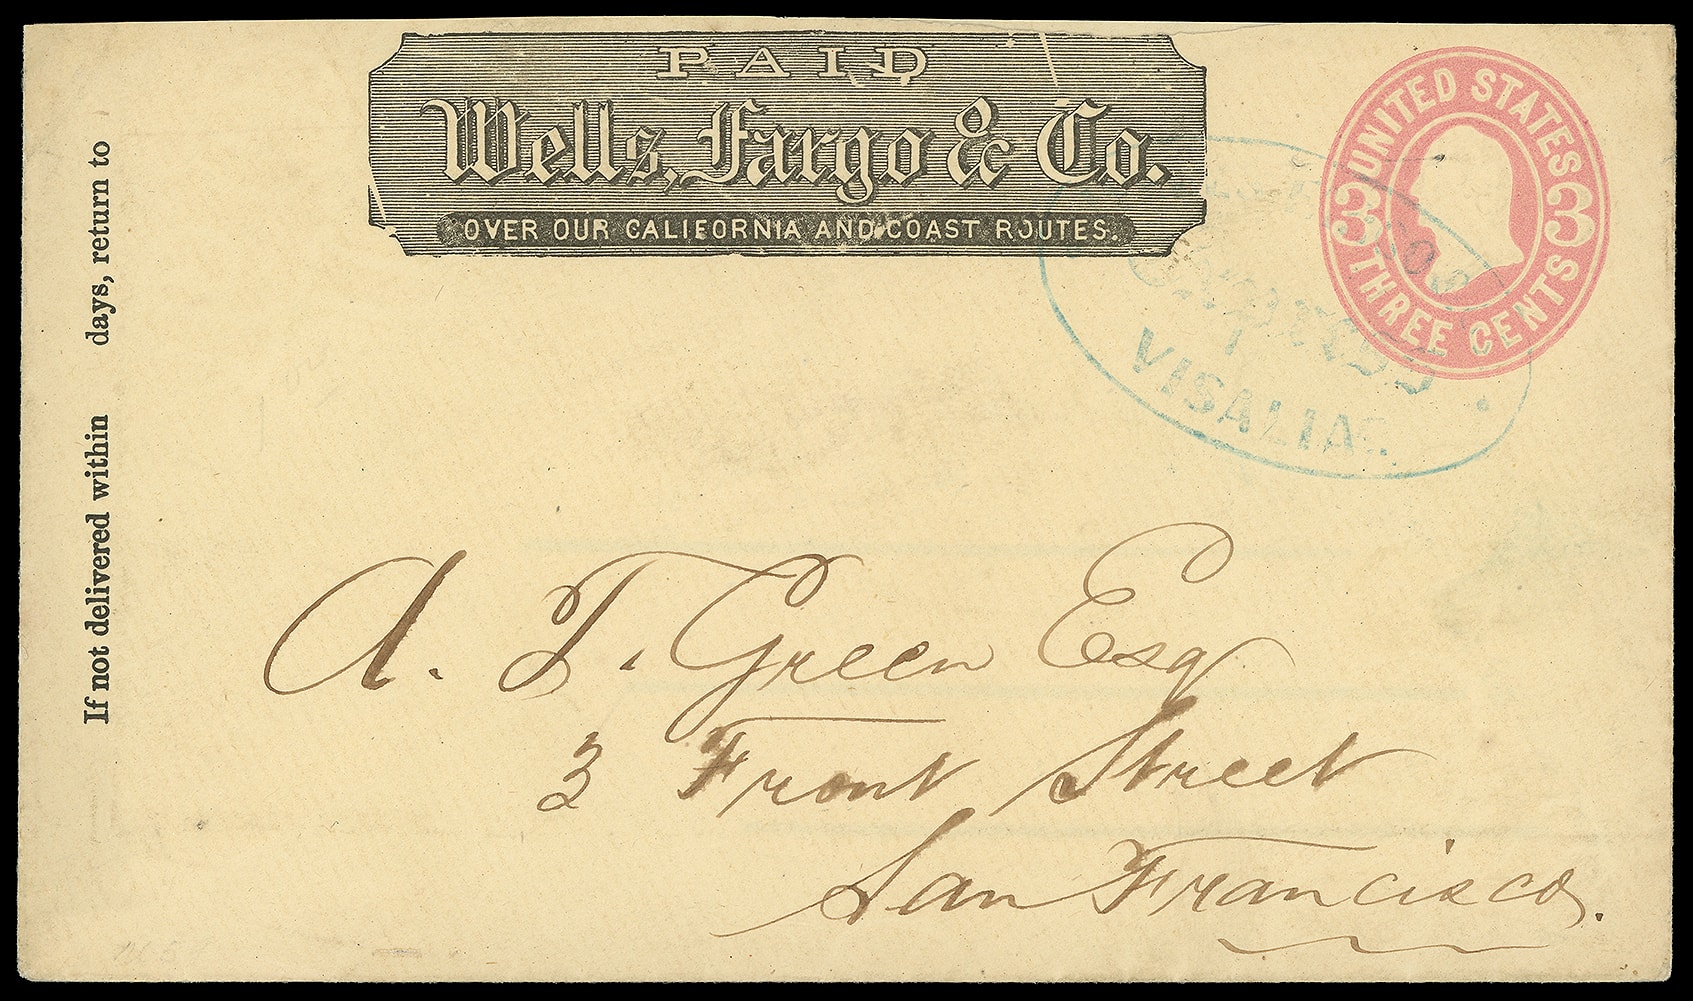 PAID
Wells, Fargo & Co.
OVER OUR CALIFORNIA AND COAST ROUTES.
UNITED STATES
3 3
THREE CENTS
VISALIA
If not delivered within days, return to
A. T. Green Esq
3 Front Street
San Francisco.